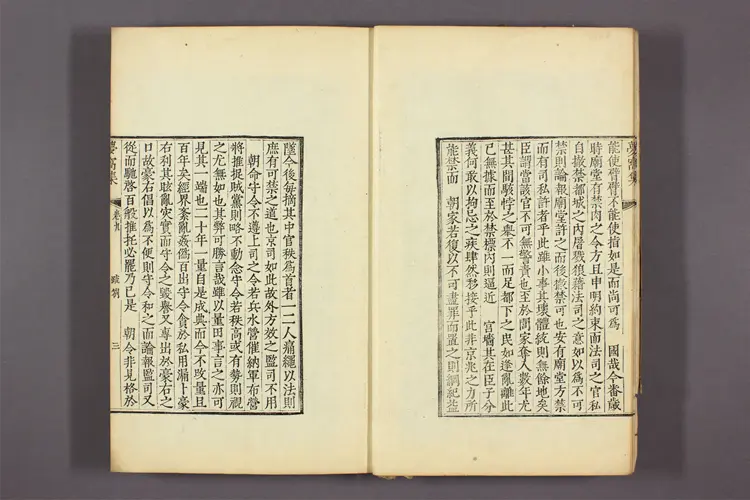 夢窩集
能使臂臂不能使指如是而尚可爲 國哉今番歲
時廟堂有禁肉之令方且申明約束而法司之官私
自撤禁都城之內屠殺狼藉法司之意如以爲不可
禁則論報廟堂許之而後撤禁可也安有廟堂方禁
而有司私許者乎此雖小事其壞體統則無餘地矣
臣謂當該官不可無警責也至於閭家奪人數年尤
甚其間駭悖之擧不一而足都下之民如逢亂離此
已無據而至於禁標內則逼近 宮牆其在臣子分
義何敢以拘忌之疾肆然移接乎此非京兆之力所
能禁而 朝家若復以不可盡罪而置之則綱紀益
墮今後每摘其中官秩爲首者一二人痛繩以法則
庶有可禁之道也京司如此故外方效之監司不用
朝命守令不遵上司之令若兵水營催納軍布營
將推捉賊黨則略不動念守令若秩高或有勢則視
之尤無如也其弊可勝言哉雖以量田事言之亦可
見其一端也二十年一量自是成典而今不改量且
百年矣經界紊亂姦僞百出守令貪於私用漏卜豪
右利其眩亂灾實而守令之毀譽又專出於豪右之
口故豪右倡以爲不便則守令和之而論報監司又
從而馳啓百般推托必罷乃已是 朝令非見格於
卷九
疏箚
三